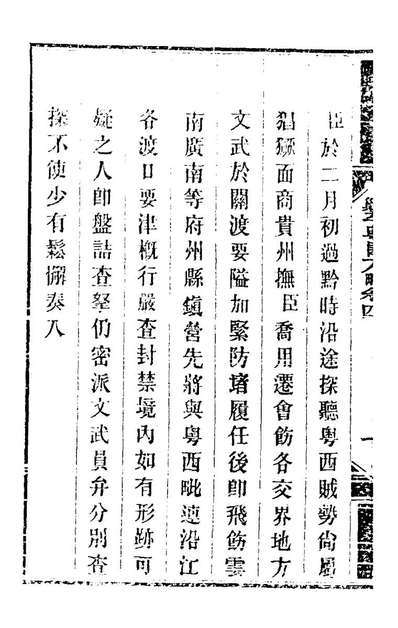 臣於二月初過黔時沿途探聽粤西賊勢尙屬
猖獗面商貴州撫臣喬用遷會飭各交界地方
文武於關渡要隘加緊防堵履任後卽飛飭雲
南廣南等府州縣鎭營先將與粤西毗連沿江
各渡口要津概行嚴查封禁境內如有形跡可
疑之人卽盤詰查拏仍密派文武員弁分別查
探不使少有鬆懈奏入